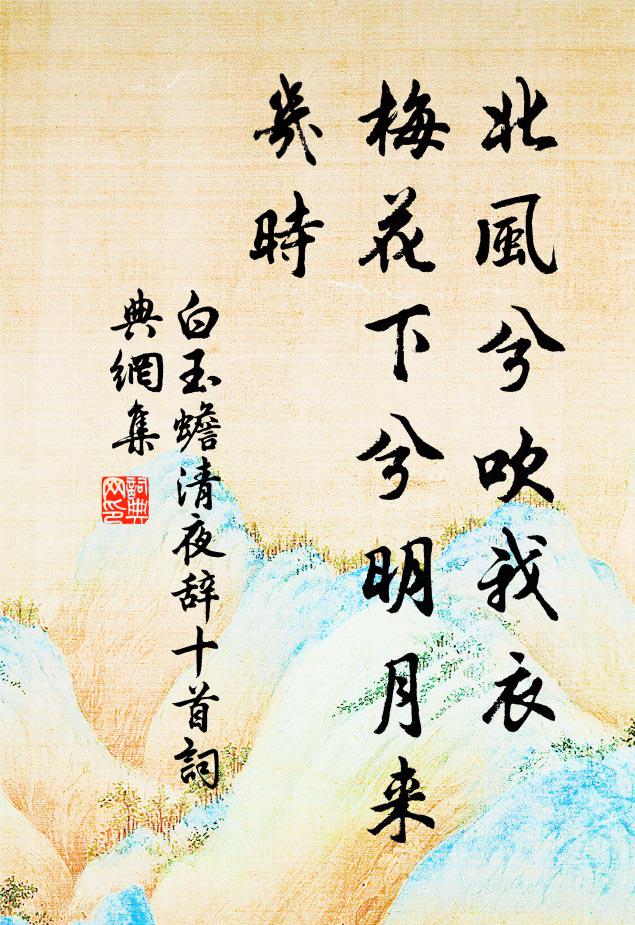 北風兮吹我衣
梅花下兮明月来
幾時
白玉蟾清夜辞十首詞
典網集
詞典
网印